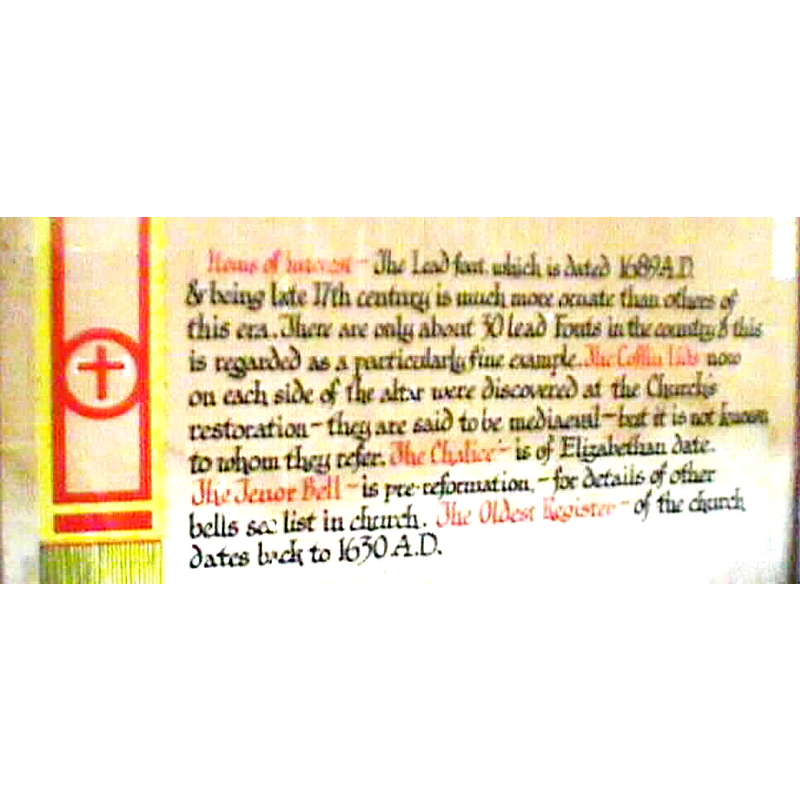 Items of Interest - The Lead font, which is dated 1689 A.D.
& being late 17th century is much more ornate than others of
this era. There are only about 30 lead Fonts in the country & this
is regarded as a particularly fine example. The Coffin Lids now
on each side of the altar were discovered at the Church's
restoration - they are said to be mediaeval - but it is not known
to whom they refer. The Chalice - is of Elizabethan date.
The Tenor Bell - is pre-reformation, - for details of other
bells see list in church. The Oldest Register - of the church
dates back to 1630 A.D.